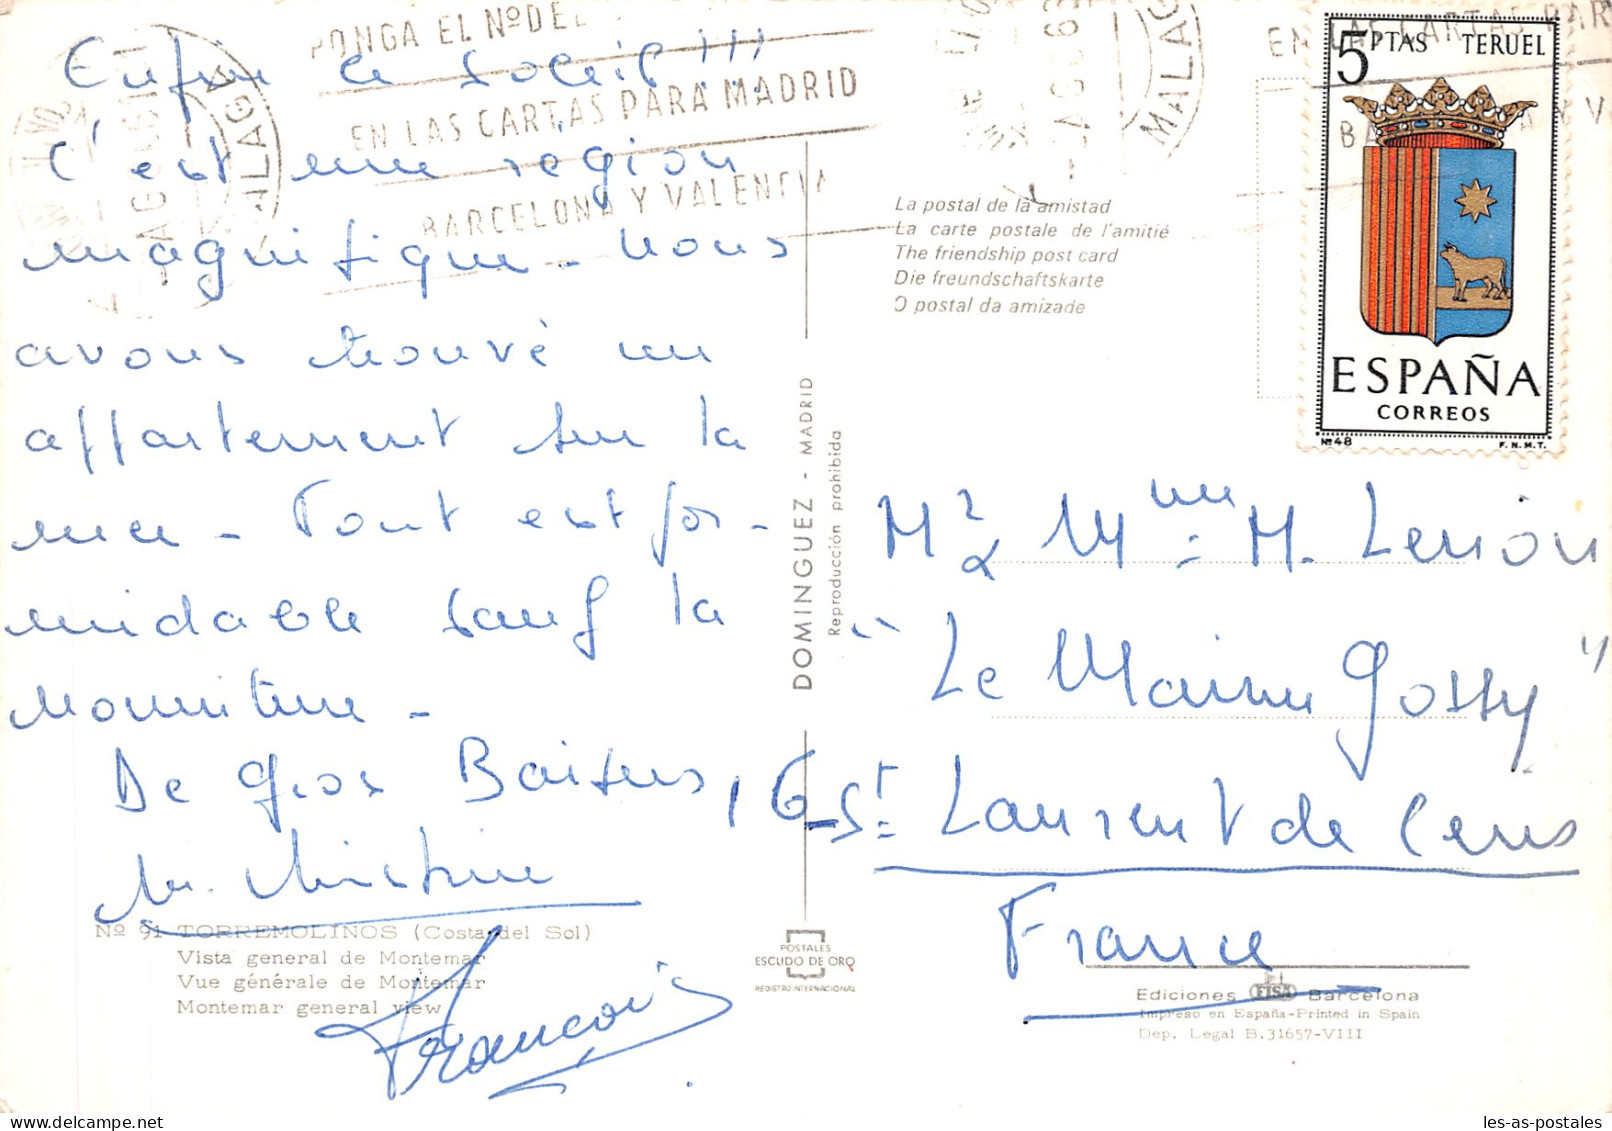 Enfin le soleil !!!
C'est une région
magnifique - Nous
avons trouvé un
appartement sur la
mer - Tout est for-
midable sauf la
nourriture -
De gros Baisers,
M. Christine
François
PONGA EL Nº DE
EN LAS CARTAS PARA MADRID
BARCELONA Y VALENCIA
MALAGA
MALAGA
5 PTAS TERUEL
ESPAÑA
CORREOS
Nº 48 F.N.M.T.
La postal de la amistad
La carte postale de l'amitié
The friendship post card
Die freundschaftskarte
O postal da amizade
DOMINGUEZ - MADRID
Reproducción prohibida
Mr & Mme M.
"Le
16 - St Laurent de Ceris
France
Nº 91 TORREMOLINOS (Costa del Sol)
Vista general de Montemar
Vue générale de Montemar
Montemar general view
POSTALES
ESCUDO DE ORO
REGISTRO INTERNACIONAL
Ediciones FISA Barcelona
Impreso en España-Printed in Spain
Dep. Legal B.31657-VIII
les-as-postales